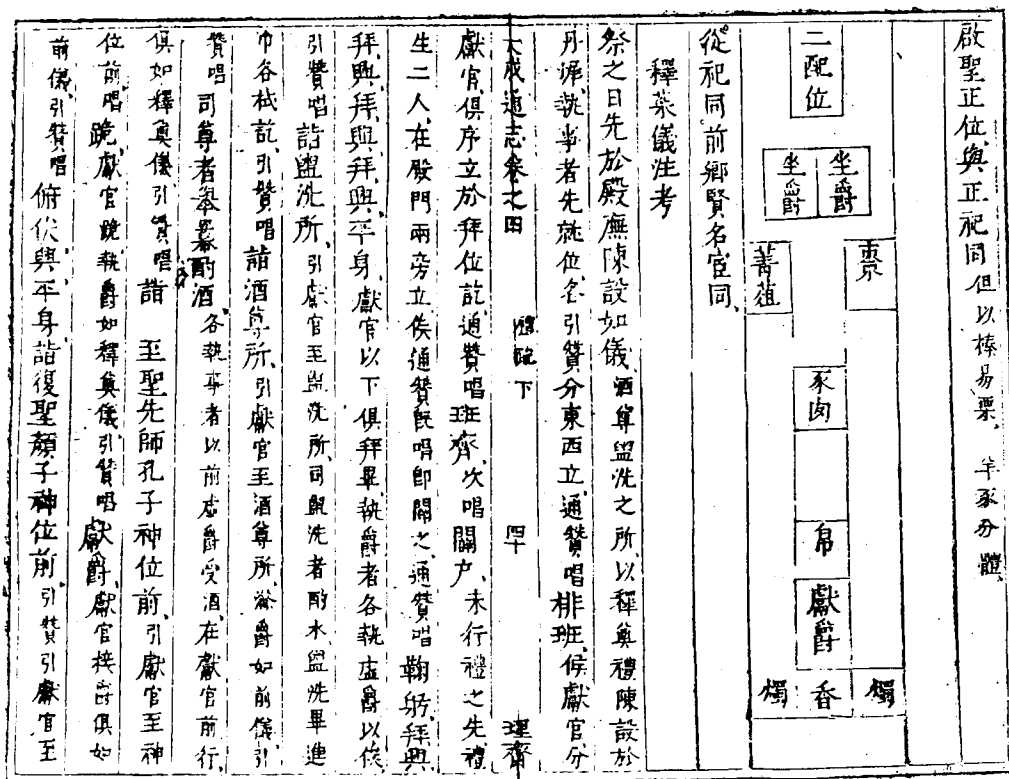 啟聖正位與正祀同但以榛易栗羊豕分體
二配位
坐爵 坐爵
菁菹 栗
豕肉
帛
獻爵
燭 香 燭
從祀同前鄉賢名宦同
釋菜儀注考
祭之日先於殿廡陳設如儀酒尊盥洗之所以釋奠禮陳設於
丹墀執事者先就位各引贊分東西立通贊唱排班俟獻官分
大成通志卷之四 下 四十 理齋
獻官俱序立於拜位訖通贊唱班齊次唱闢户未行禮之先禮
生二人在殿門兩旁立俟通贊既唱即闢之通贊唱鞠躬拜興
拜興拜興拜興平身獻官以下俱拜畢執爵者各執虛爵以俟
引贊唱詣盥洗所引獻官至盥洗所司盥洗者酌水盥洗畢進
巾各拭訖引贊唱詣酒尊所引獻官至酒尊所滌爵如前儀引
贊唱司尊者舉冪酌酒各執事者以前虛爵受酒在獻官前行
俱如釋奠儀引贊唱詣至聖先師孔子神位前引獻官至神
位前唱跪獻官跪執爵如釋奠儀引贊唱獻爵獻官接爵俱如
前儀引贊唱俯伏興平身詣復聖顏子神位前引贊引獻官至